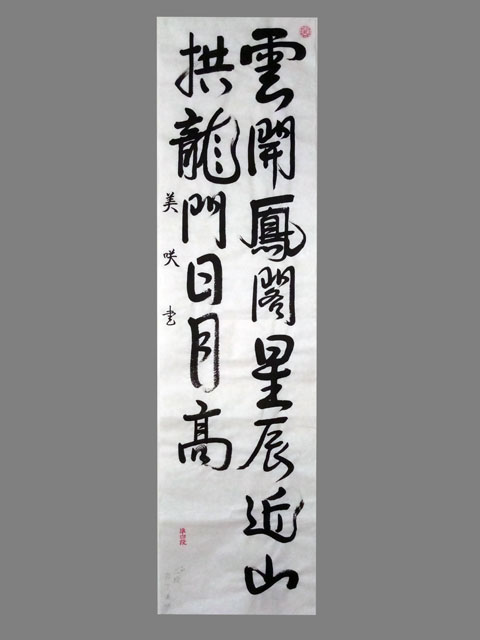 雲開鳳閣星辰近山
拱龍門日月高
美咲書